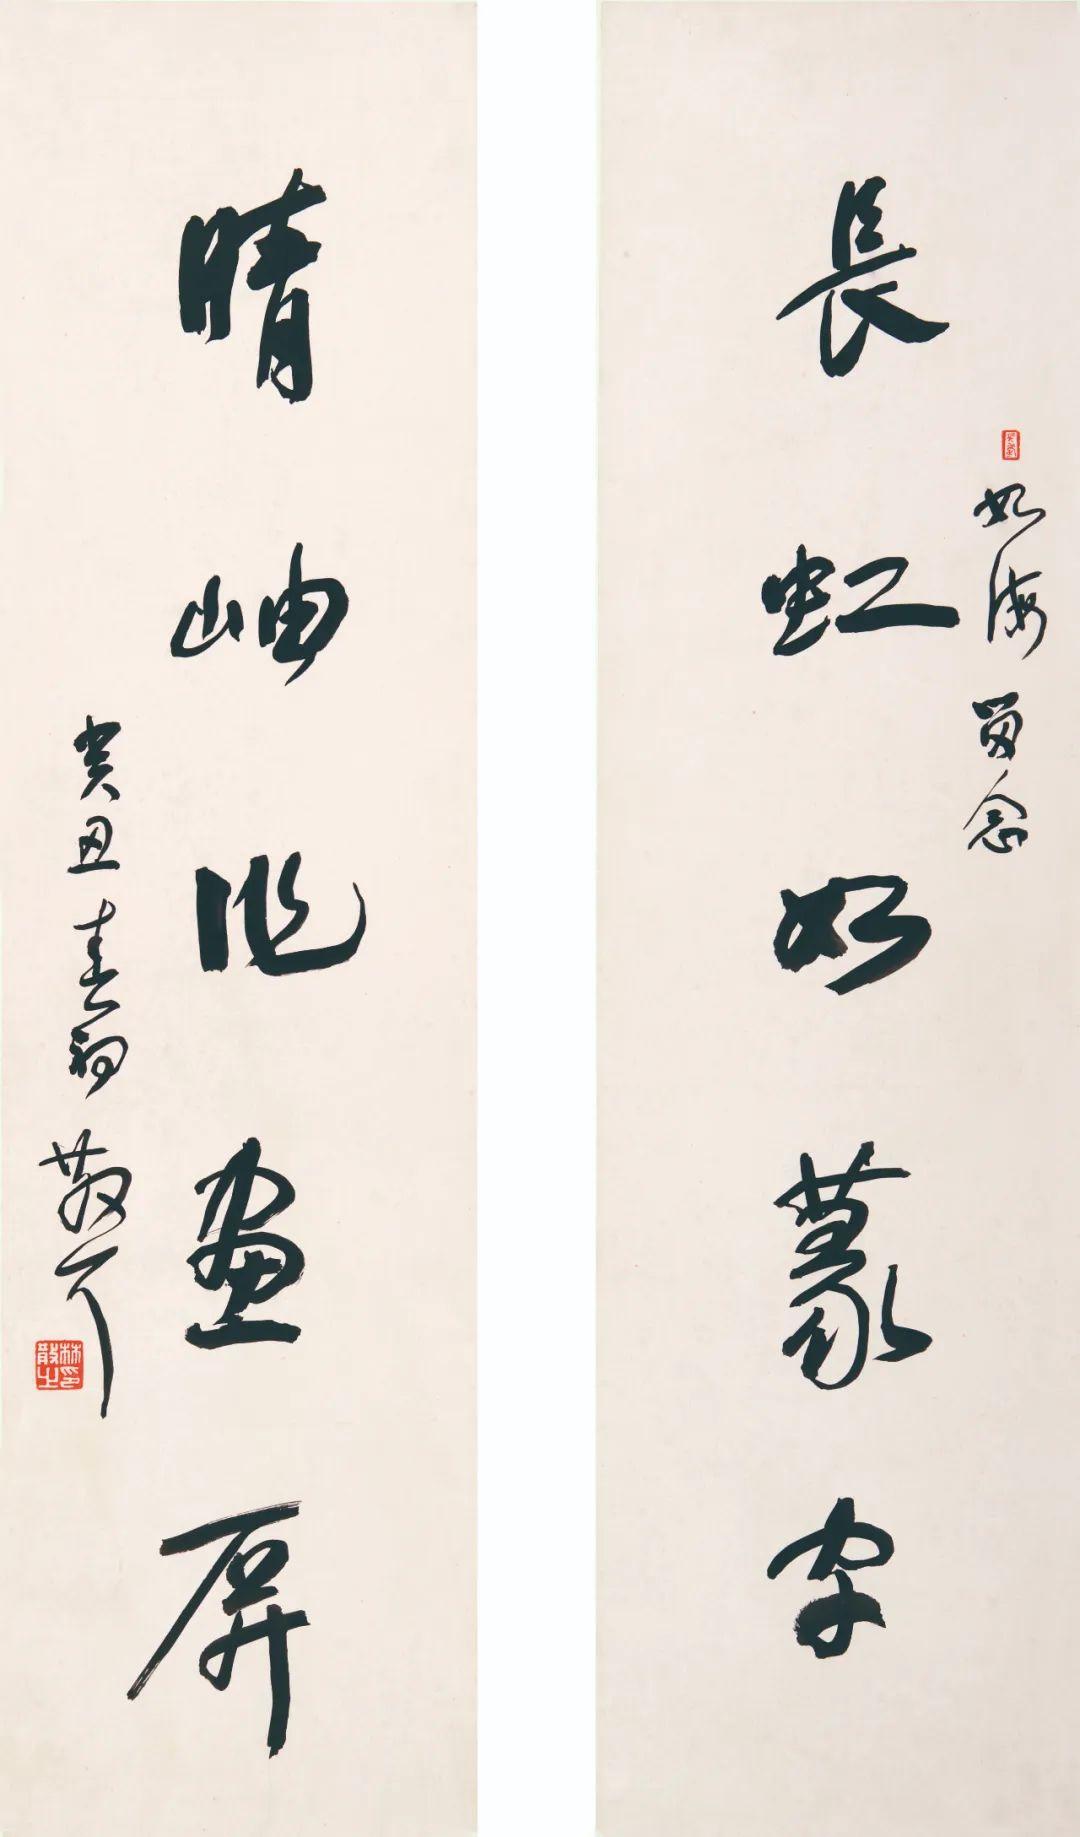 長虹如篆字
如海留念
晴岫作畫屏
癸丑春初 散耳
林散之印